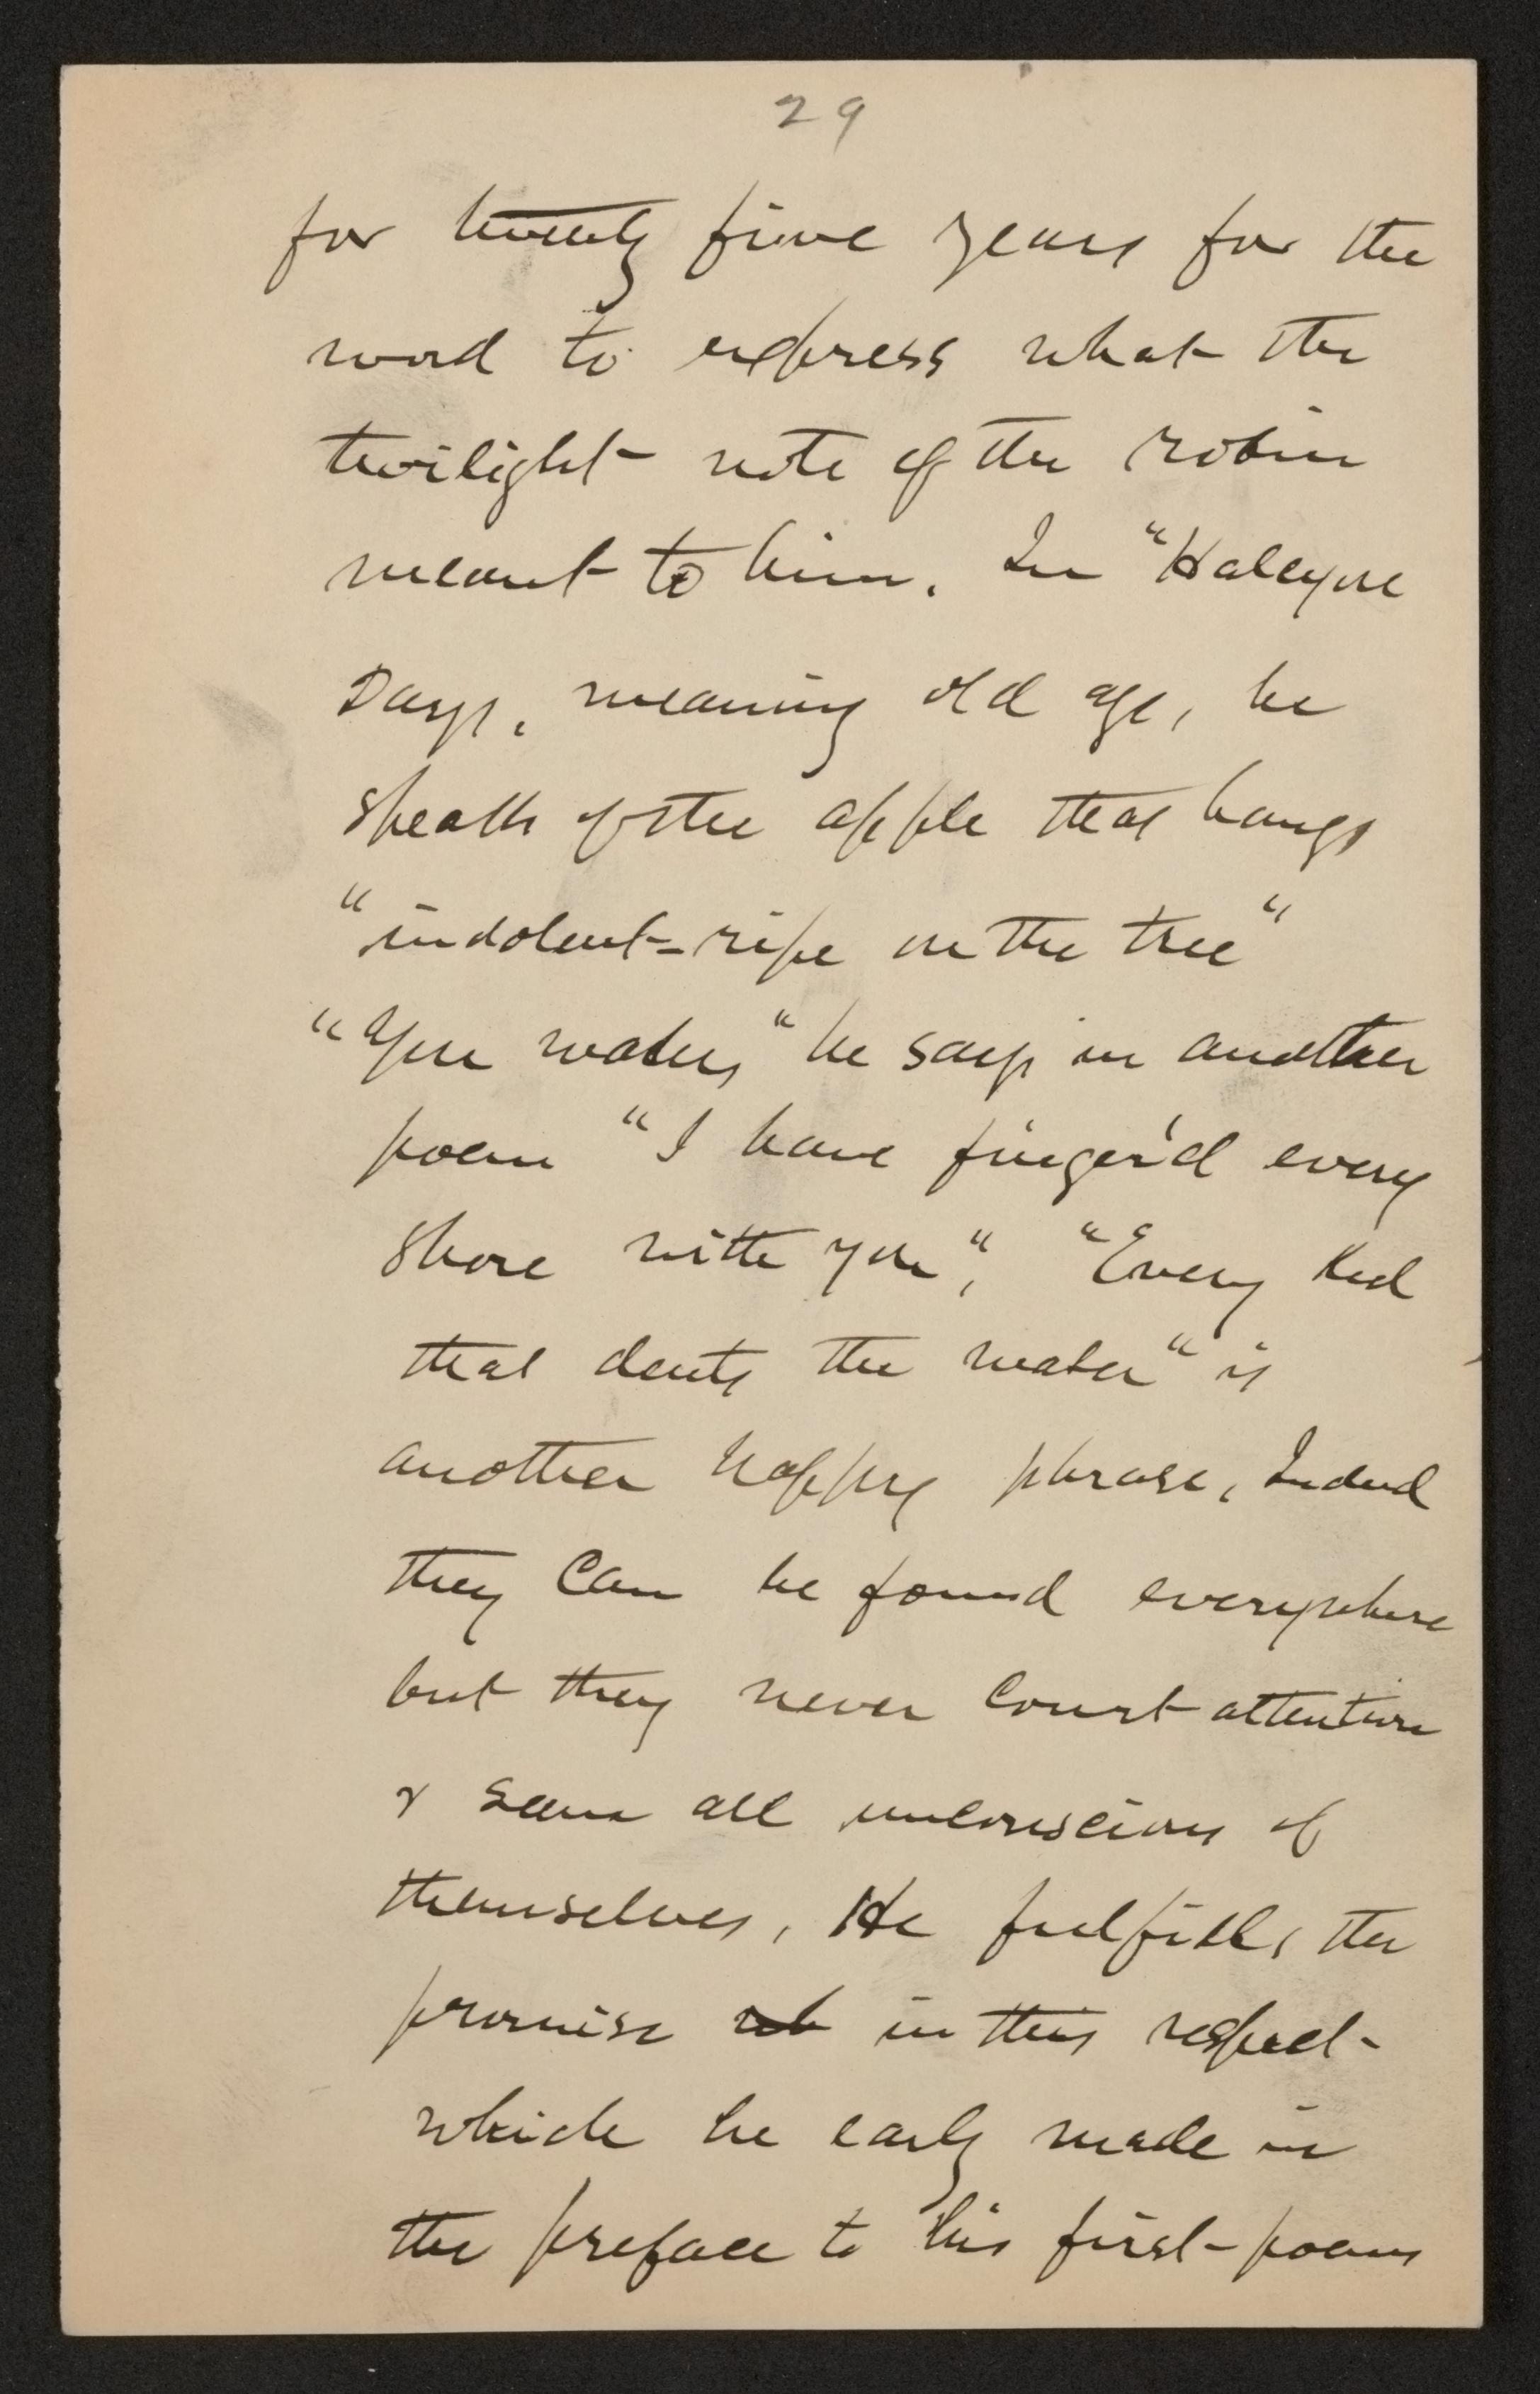 29
for twenty five years for the
word to express what the
twilight note of the robin
meant to him. In "Halcyon
Days, meaning old age, he
speaks of the apple that hangs
"indolent-ripe on the tree"
"You waters" he says in another
poem "I have finger'd every
shore with you", "Every
that dents the water" is
another happy phrase, Indeed
they can be found everywhere
but they never court attention
& seem all unconscious of
themselves, He fulfills the
promise in this respect
which he early made in
the preface to his first poems